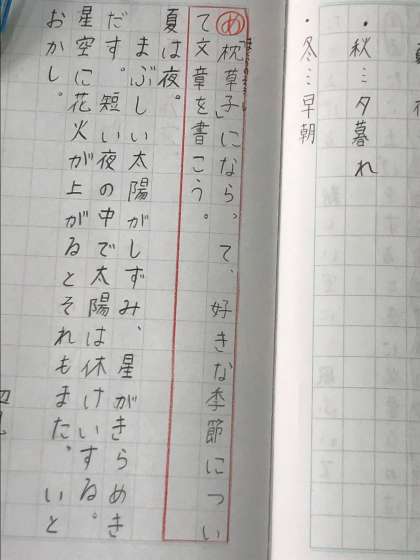 ・秋…夕暮れ
・冬…早朝
まくらのそうし
め「枕草子」にならって、好きな季節につい
て文章を書こう。
夏は夜。
まぶしい太陽がしずみ、星がきらめき
だす。短い夜の中で太陽は休けいする。
星空に花火が上がるとそれもまた、いと
おかし。